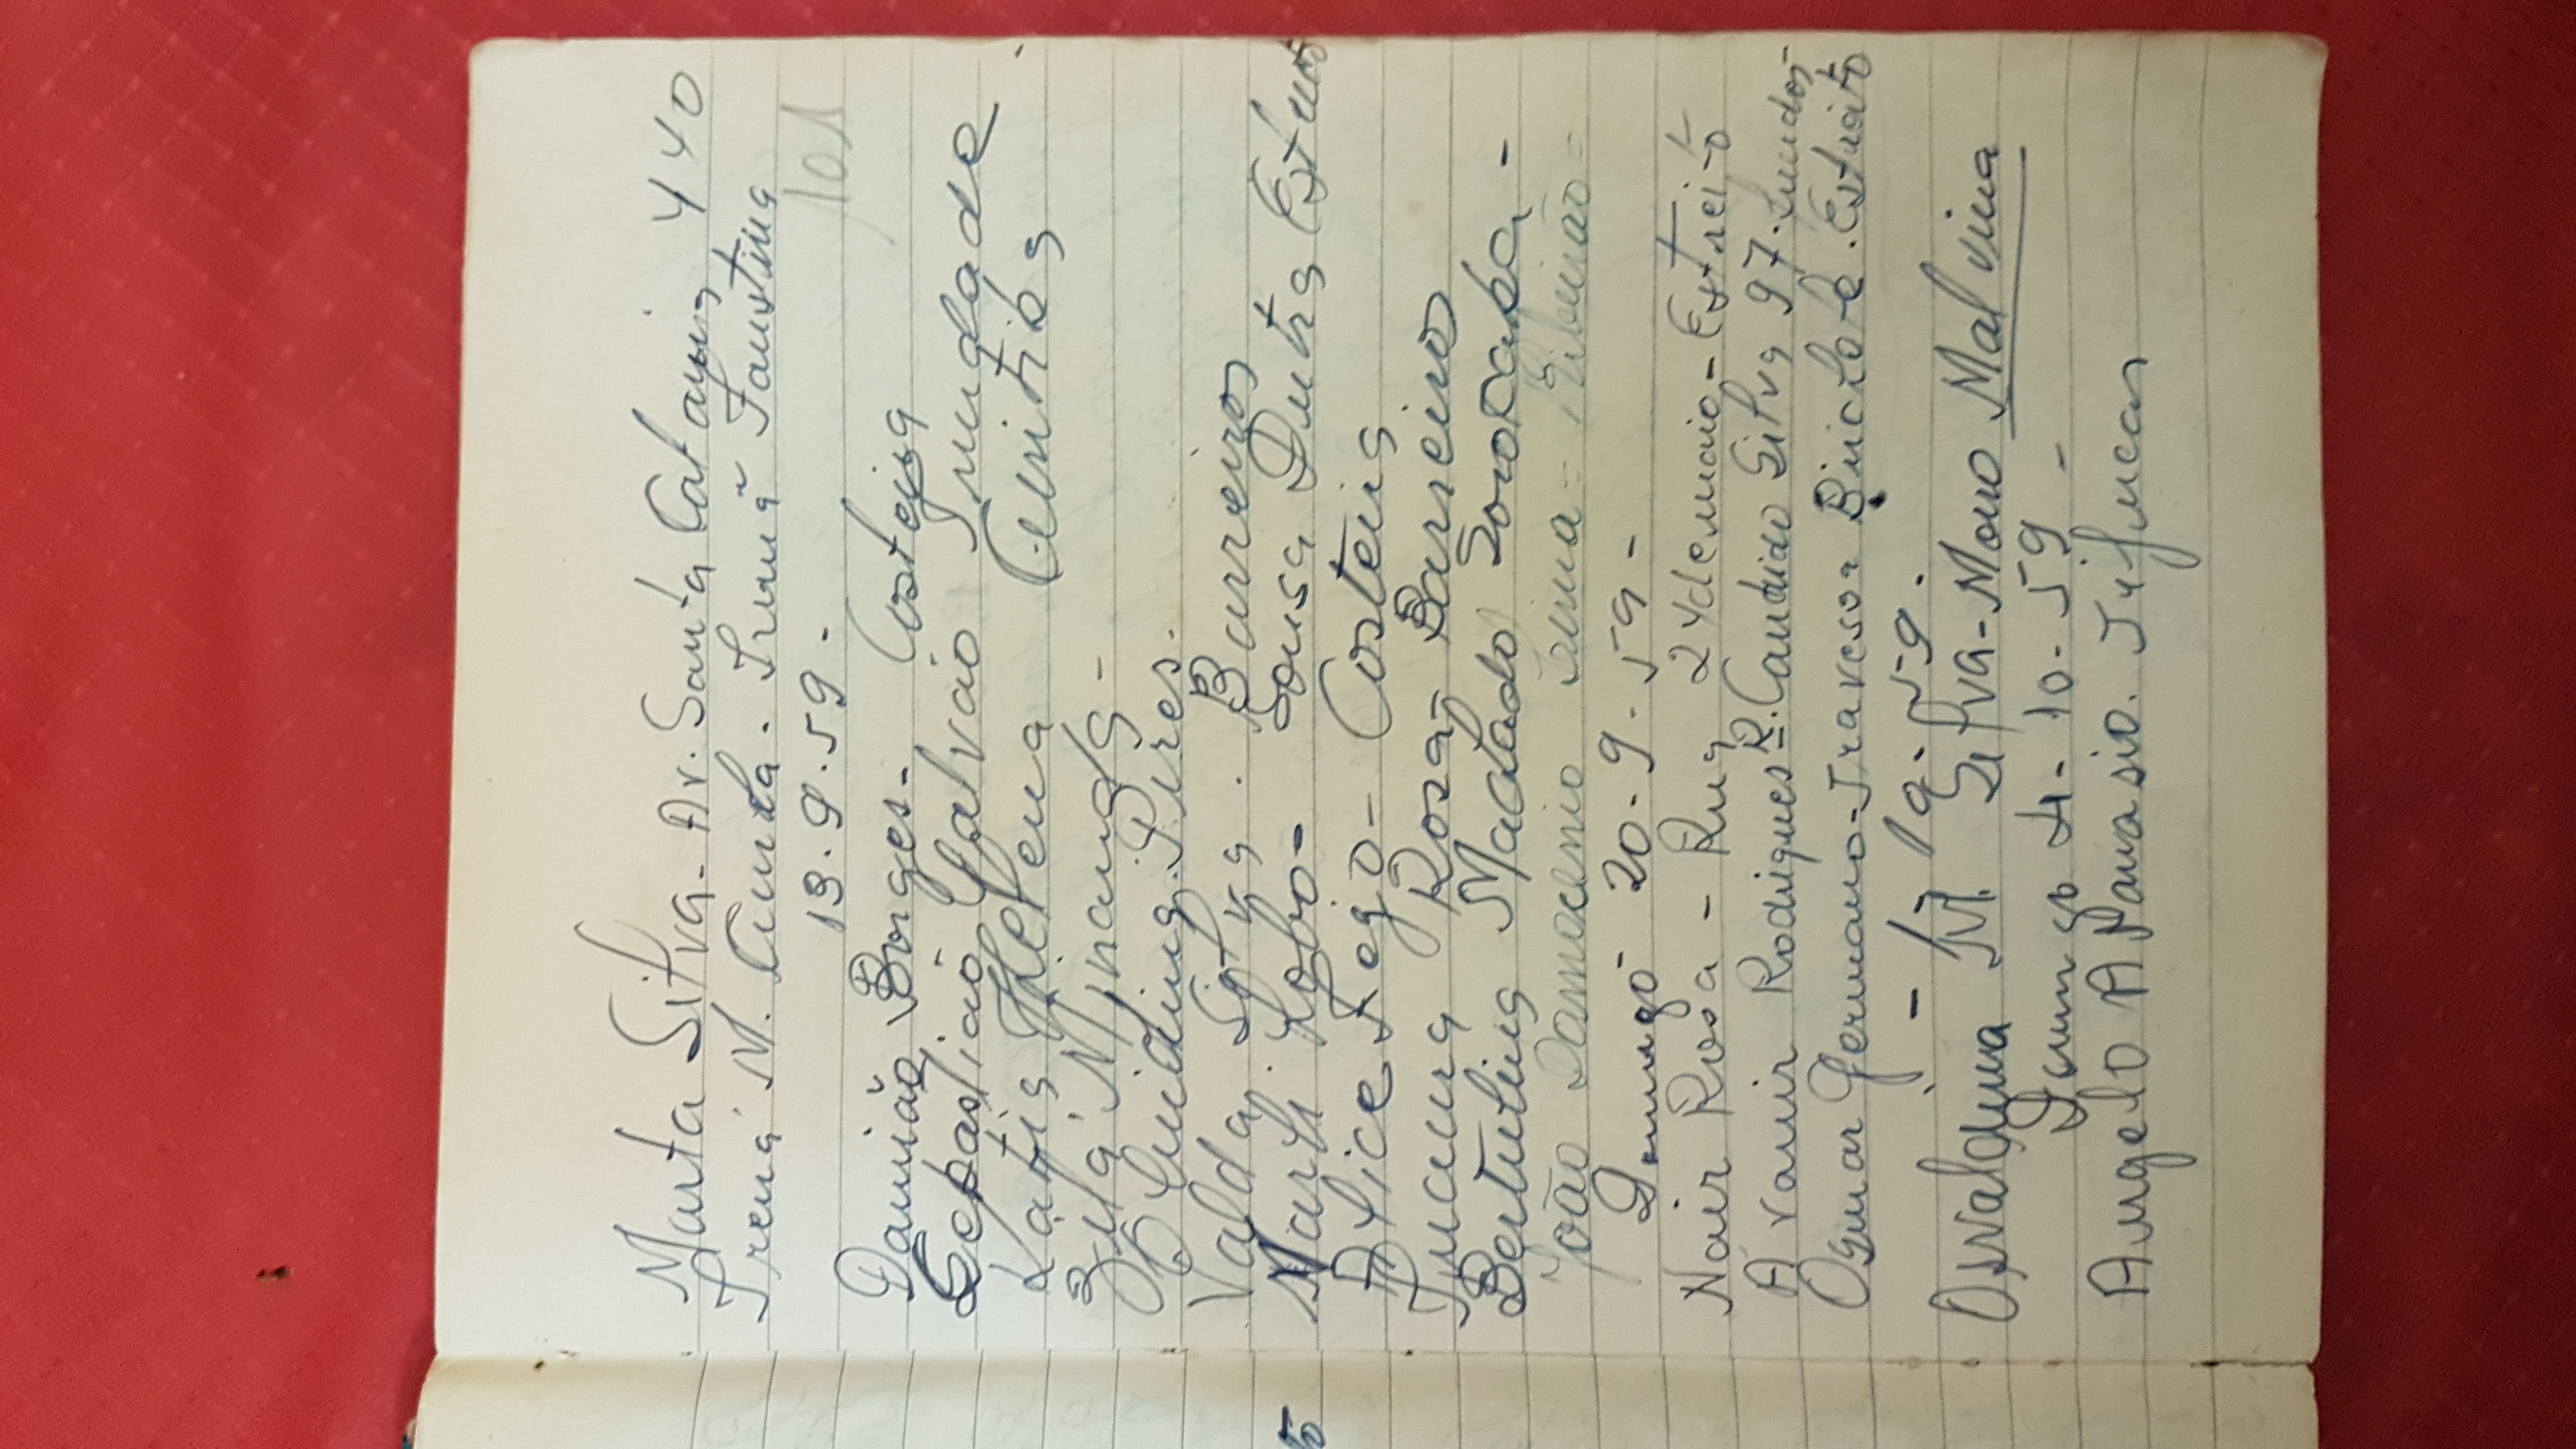 Marta Silva - Av. Santa Catarina 440
Irená M. Cunha. Irmã Faustina
101
13.9.59 -
Damião Borges - Costeira
Sebastião Galvão Trindade
Katia Helena Curitiba
Zulá Miranda -
Blundina Pires.
Valda Silva. Barreiros
Marli Lobo - Sousa Dutra Estreito
Alice Fego - Costeira
Jucena Rosa - Barreiros
Bertulina Machado Soroaba -
João Damaceno Lima =
Domingo 20-9-59-
Nair Rosa - Rua 24 de maio - Estreito
Avanir Rodrigues R. Candido Silva 97. fundos -
Osmar Germano - Travessa Bricibere. Estreito
- M 19-59.
Osvaldina M. Silva - Morro Mal vina
Domingo 4-10-59 -
Angelo A Panasio. Tijucas